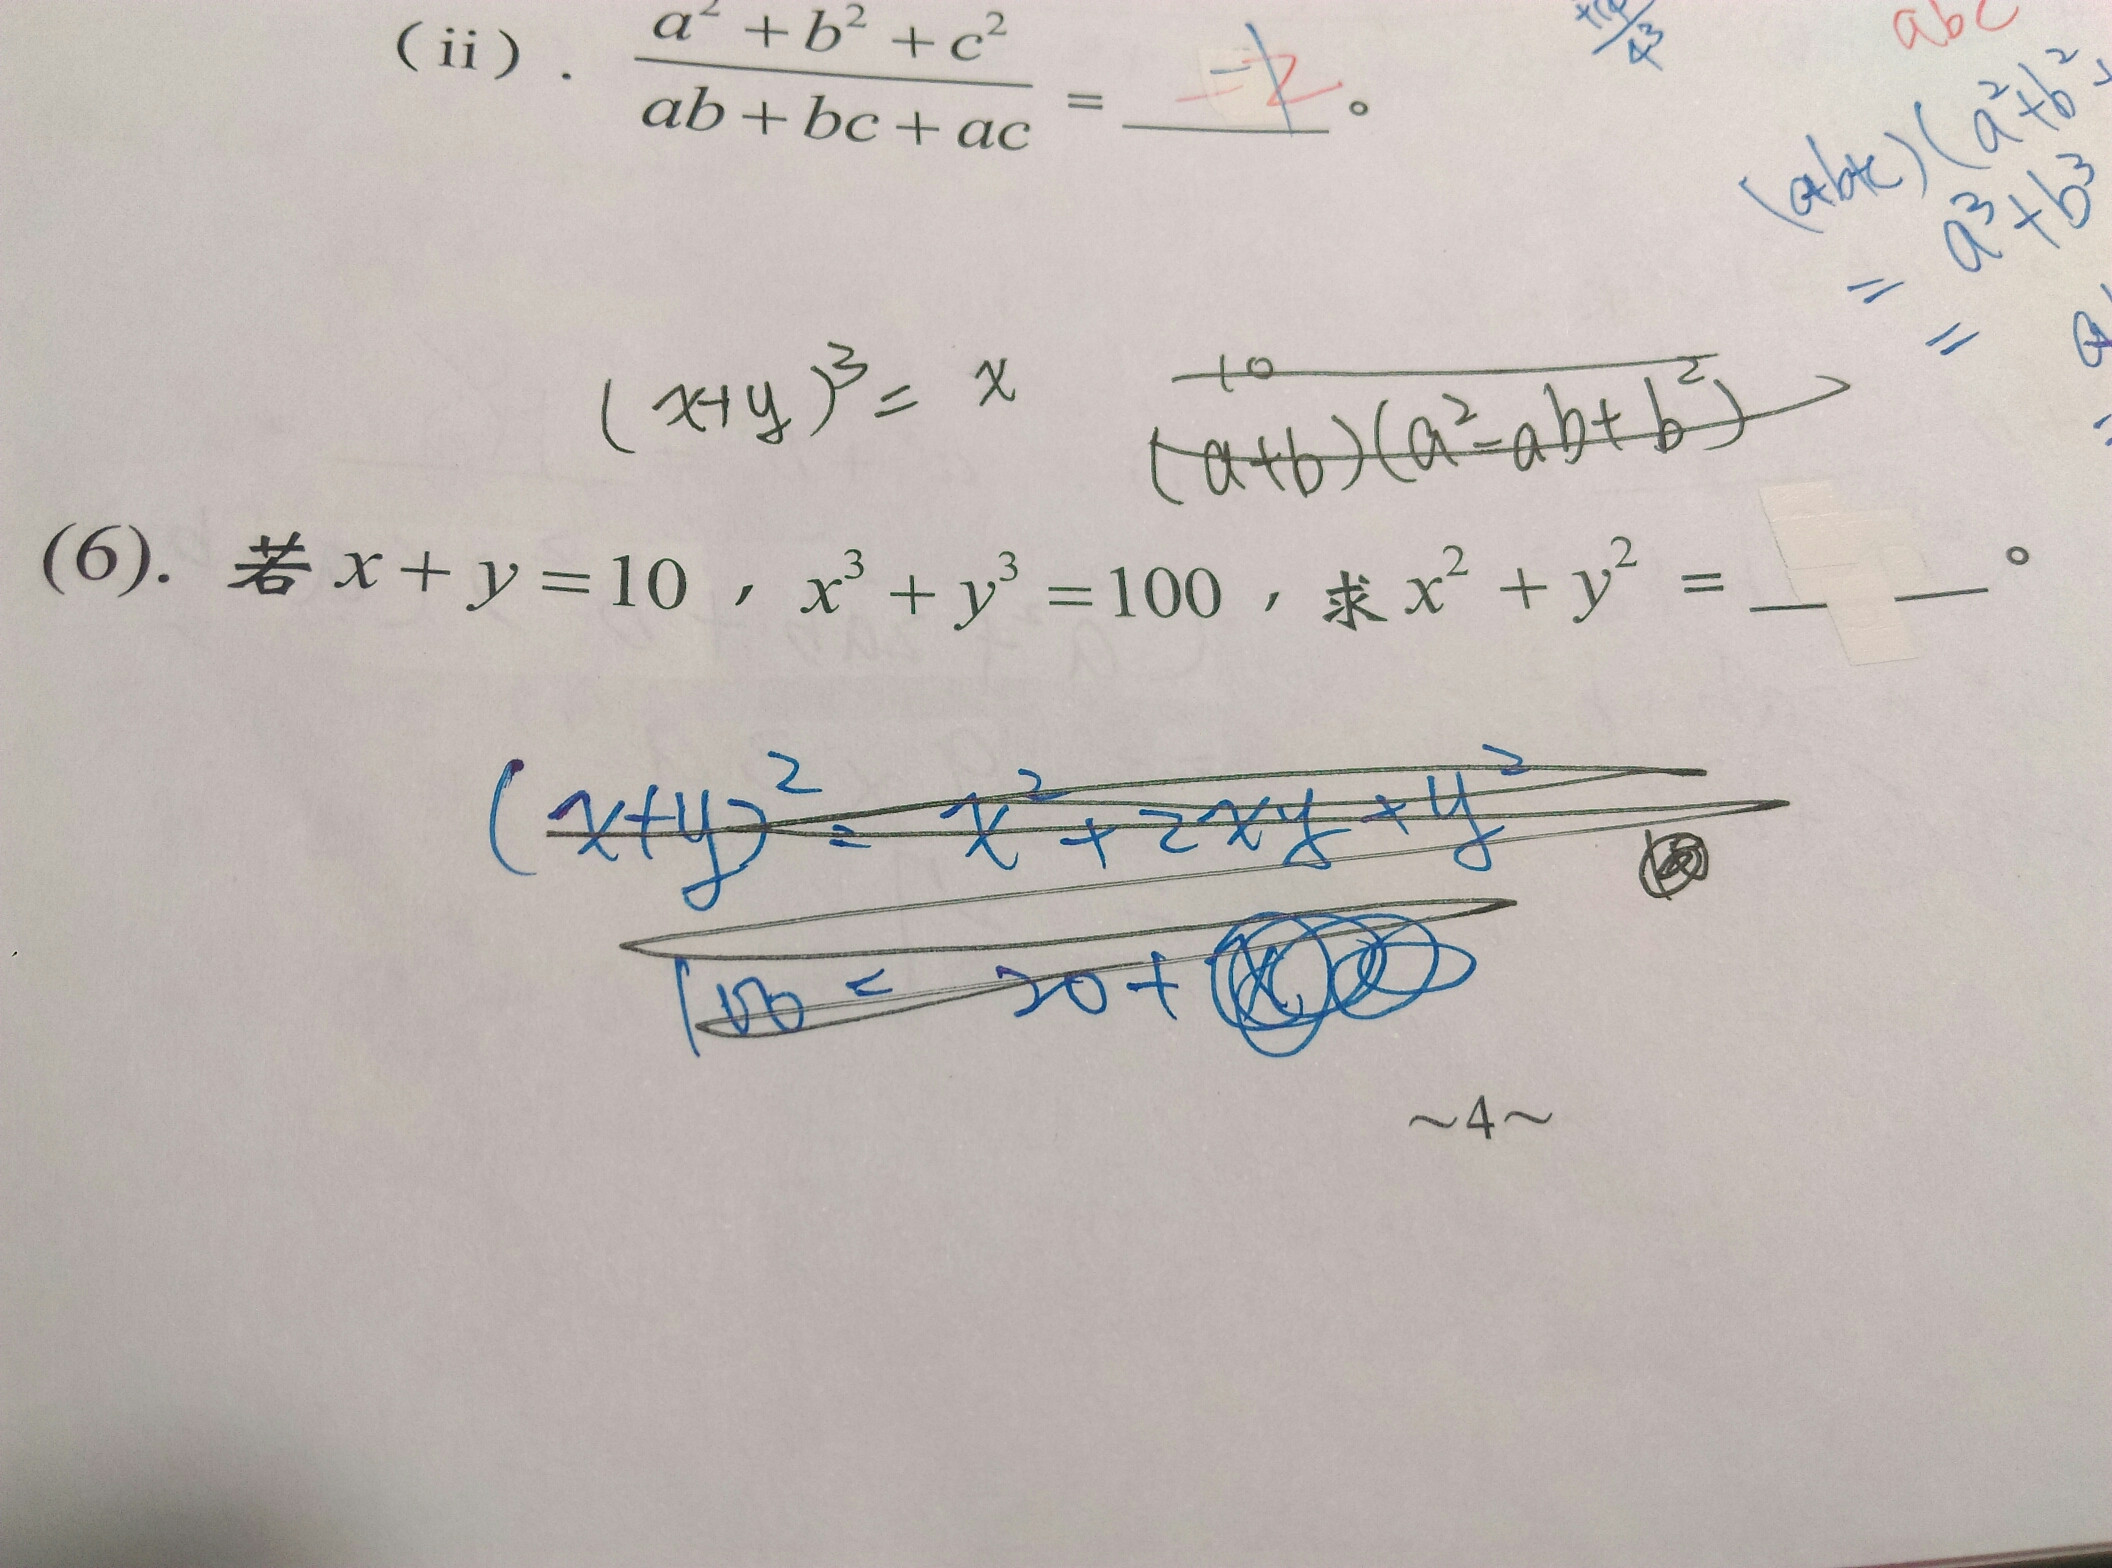 (ii). \frac{a² + b² + c²}{ab + bc + ac} = -2 。
abc
(a+b+c)(a²+b²+
= a³+b³
=
(x+y)³ = x
10
(a+b)(a²-ab+b²)
(6). 若 x + y = 10 , x³ + y³ = 100 , 求 x² + y² = __ __ 。
(x+y)² = x² + 2xy + y²
100 = 20 +
~4~